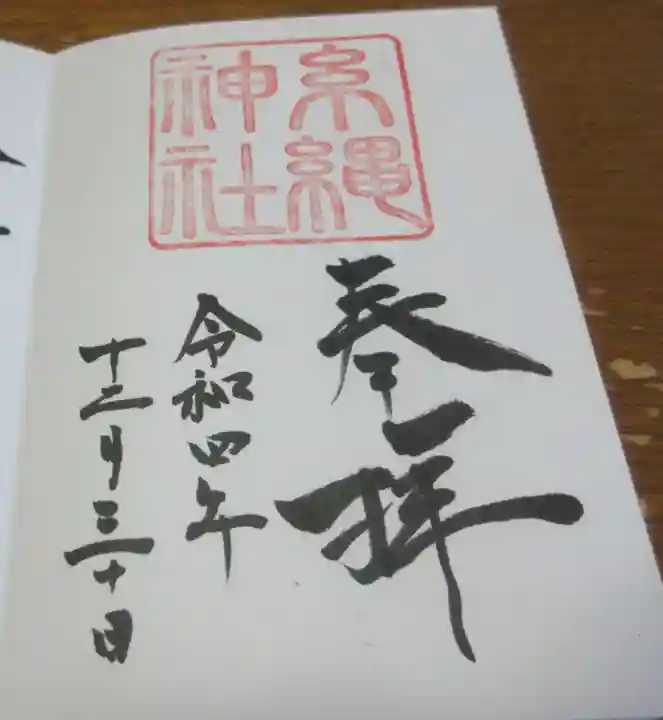 糸縄
神社
奉拝
令和四年
十二月三十日